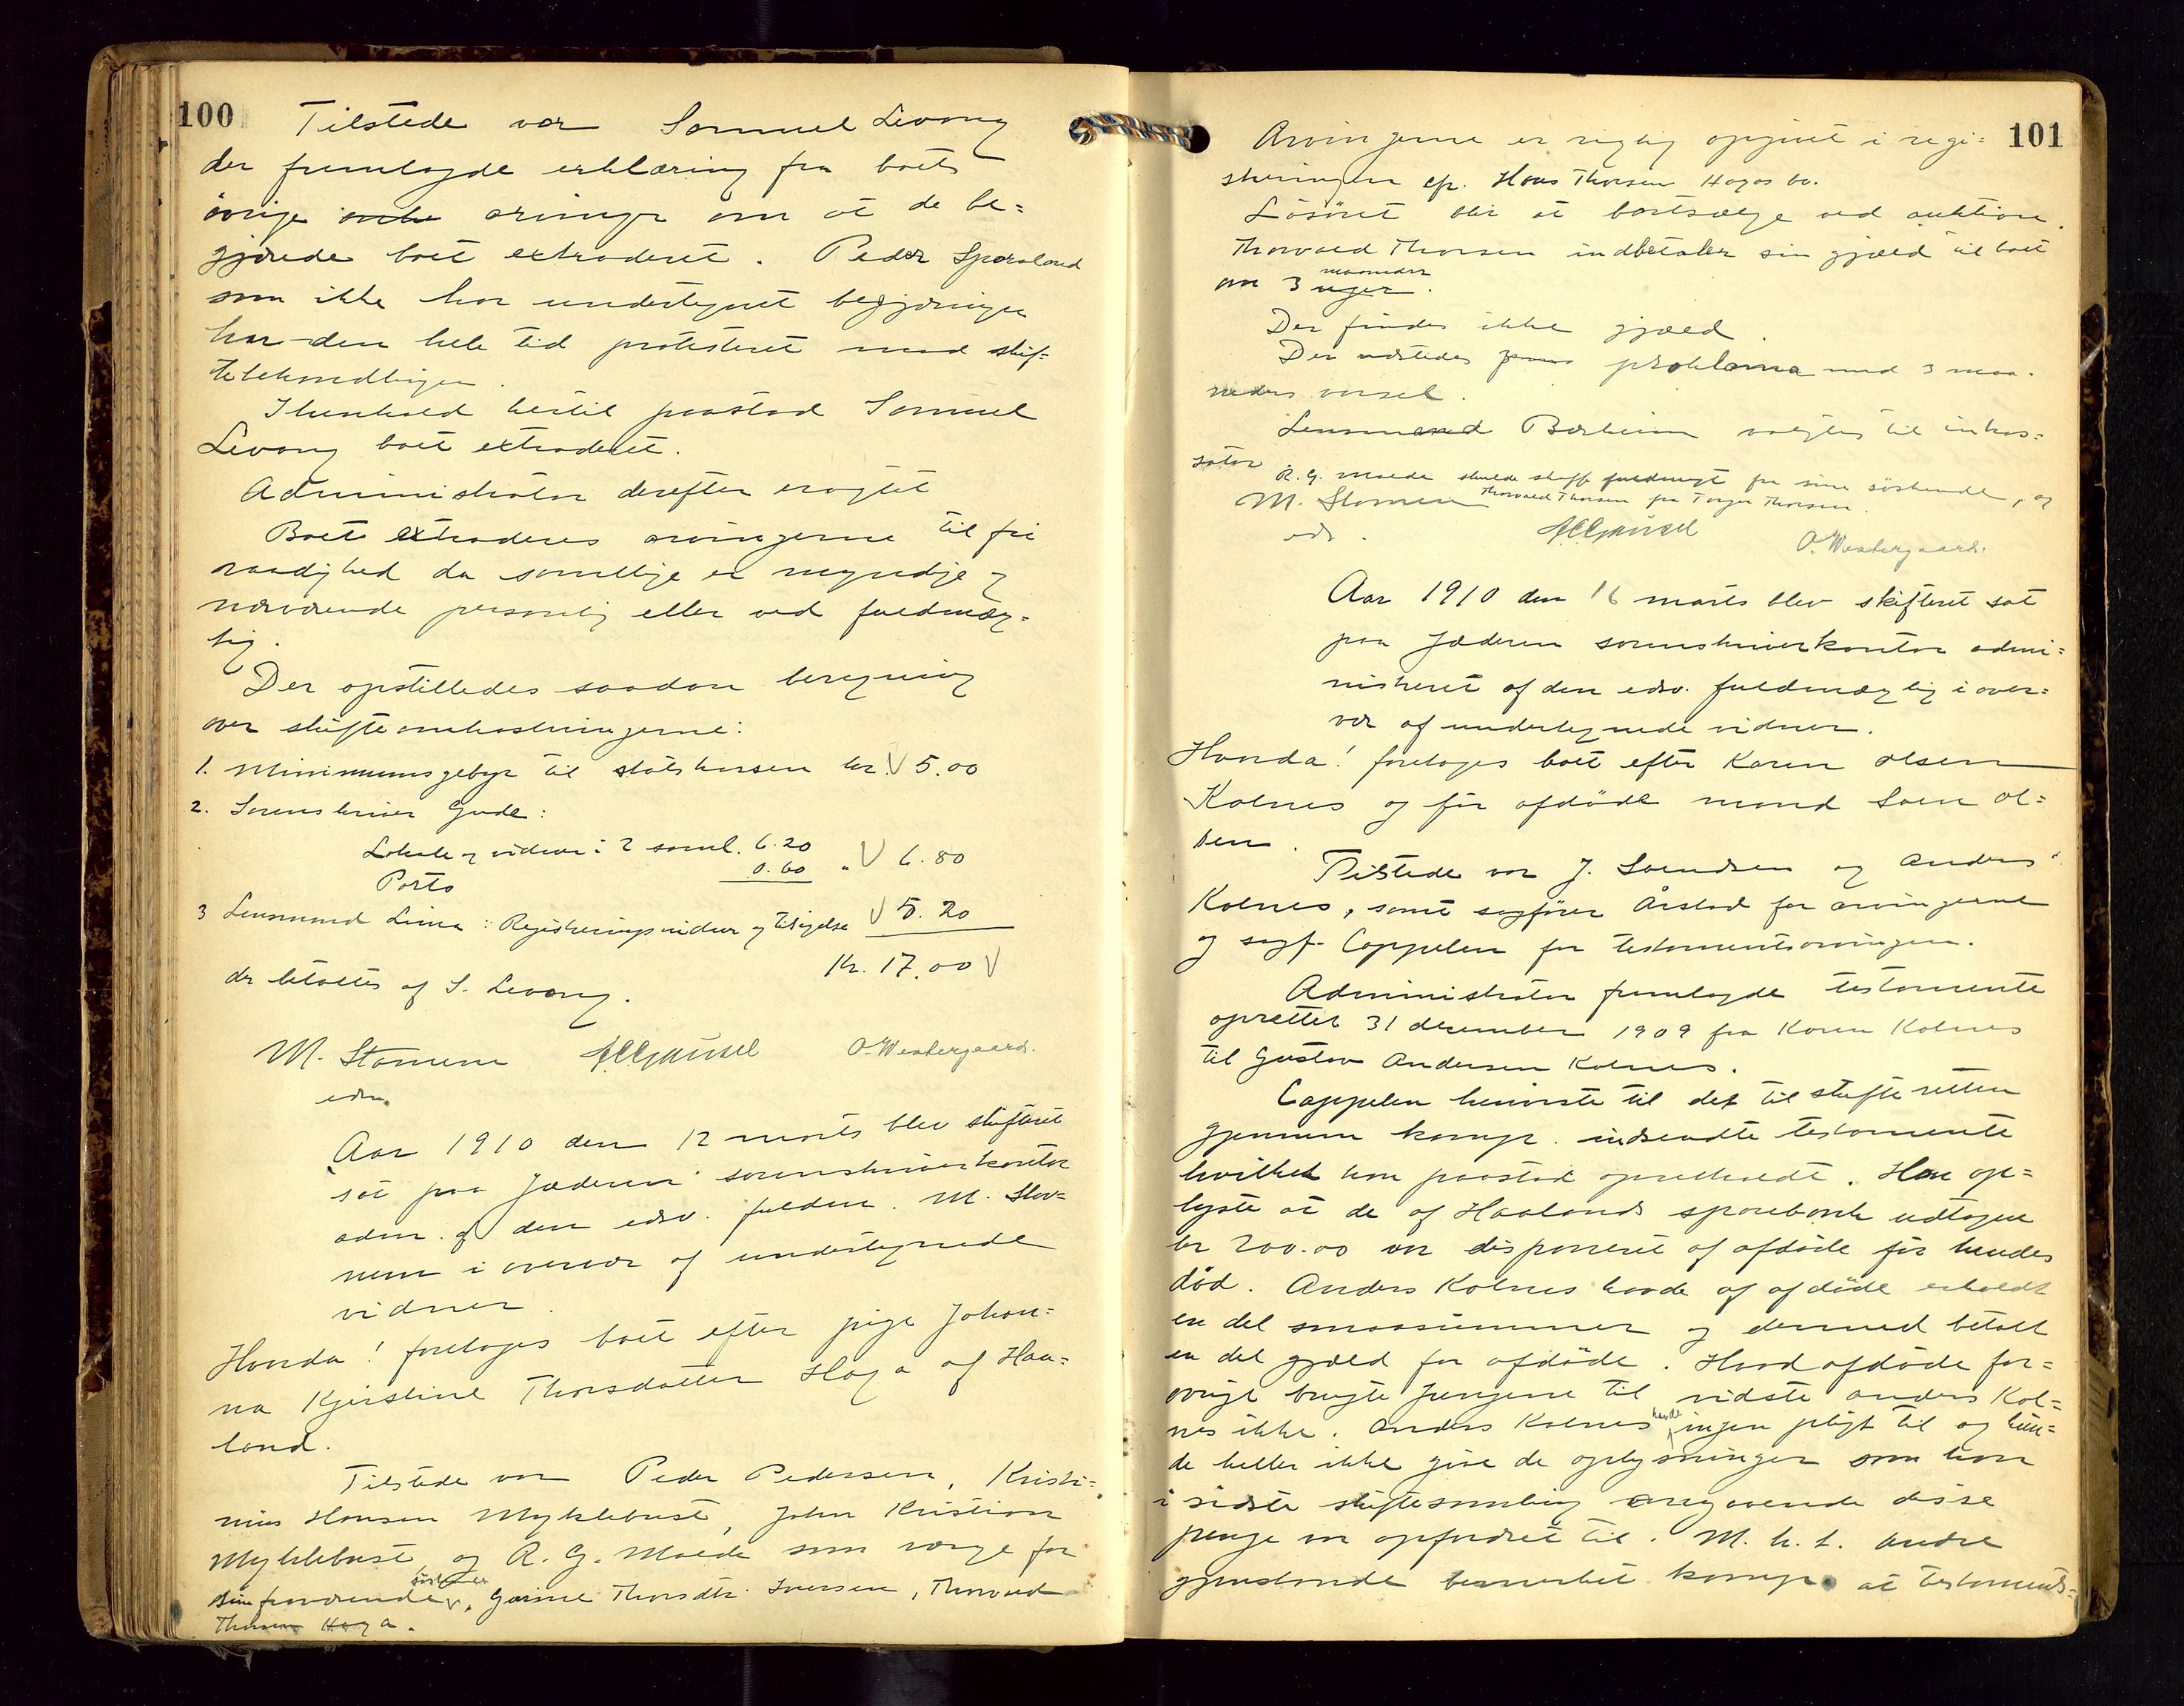 100
Tilstede var Samuel Levang
der fremlagde erklæring fra boets
övrige arvinger om at de be=
gjærede boet extraderet. Peder Sporaland
som ikke har undertegnet begjæringen
har den hele tid protesteret mod skif=
tebehandlingen.
I henhold hertil paastod Samuel
Levang boet extraderet.
Administrator derefter eragtet
Boet extraderes arvingerne til fri
raadighed da samtlige er myndige og
nærværende personlig eller ved fuldmæg=
tig.
Der opstilledes saadan beregning
over skifteomkostningerne:
1. Minimumsgebyr til statskassen kr. 5.00
2. Sorenskriver Gude:
Lokale og vidner i 2 saml. 6.20
Porto 0.60 " 6.80
3 Lensmand Lima: Registreringsvidner og tilsigelse 5.20
Kr. 17.00
der betaltes af S. Levang.
M. Stamnen
edsv.
O. Westergaard.
Aar 1910 den 12 marts blev skifteret
sat paa Jæderen sorenskriverkontor
adm. af den edsv. fuldm. M. Stav=
nem i overvær af undertegnede
vidner.
Hvorda! foretoges boet efter pige Johan=
na Kjerstine Thorsdatter Haga af Haa=
land.
Tilstede var Peder Pedersen, Kristi=
nius Hansen Myklebust, John Kristian
Myklebust, og R. G. Malde som værge for
sin fraværende søskende, Gurine Thorsdtr. Iversen, Thorvald
Thorsen Haga.
101
Arvingerne er rigtig opgivet i regi=
streringen efr. Hans Thorsen Hagas bo.
Lösöret blir at bortsælge ved auktion.
Thorvald Thorsen indbetaler sin gjæld til boet
om 3 uger maaneder.
Der findes ikke gjæld.
Der udstedes proklama med 3 maa=
neders varsel.
Lensmand Børheim valgtes til inkas=
sator.
R. G. Malde skulde skaffe fuldmagt fra sine söskende, og
Thorvald Thorsen fra Torger Thorsen.
M. Stamnen
edsv.
O. Westergaard.
Aar 1910 den 16 marts blev skifteret sat
paa Jæderen sorenskriverkontor admi=
nistreret af den edsv. fuldmægtig i over=
vær af undertegnede vidner.
Hvorda! foretoges boet efter Karen Olsen
Kolnes og för afdöde mand Soen Ol=
sen.
Tilstede var J. Svendsen og Anders
Kolnes, samt sagförer Årstad for arvingerne
og sagf. Cappelen for testamentsarvingen.
Administrator fremlagde testamente
oprettet 31 december 1909 fra Karen Kolnes
til Gustav Andersen Kolnes.
Cappelen henviste til det til skifteretten
gjennem komp. indsendte testamente
hvilket han paastod opretholdt. Han op=
lyste at de af Haalands sparebank udtagne
kr 200.00 var disponeret af afdöde för hendes
död. Anders Kolnes havde af afdöde erholdt
en del smaasummer og dermed betalt
en del gjæld for afdöde. Hvad afdöde for=
övrigt brugte pengene til vidste Anders Kol=
nes ikke. Anders Kolnes havde ingen pligt til og kun=
de heller ikke give de oplysninger som han
i sidste skiftesamling angaaende disse
penge var opfordret til. M. h. t. andre
gjenstande bemerket komp. at testaments=